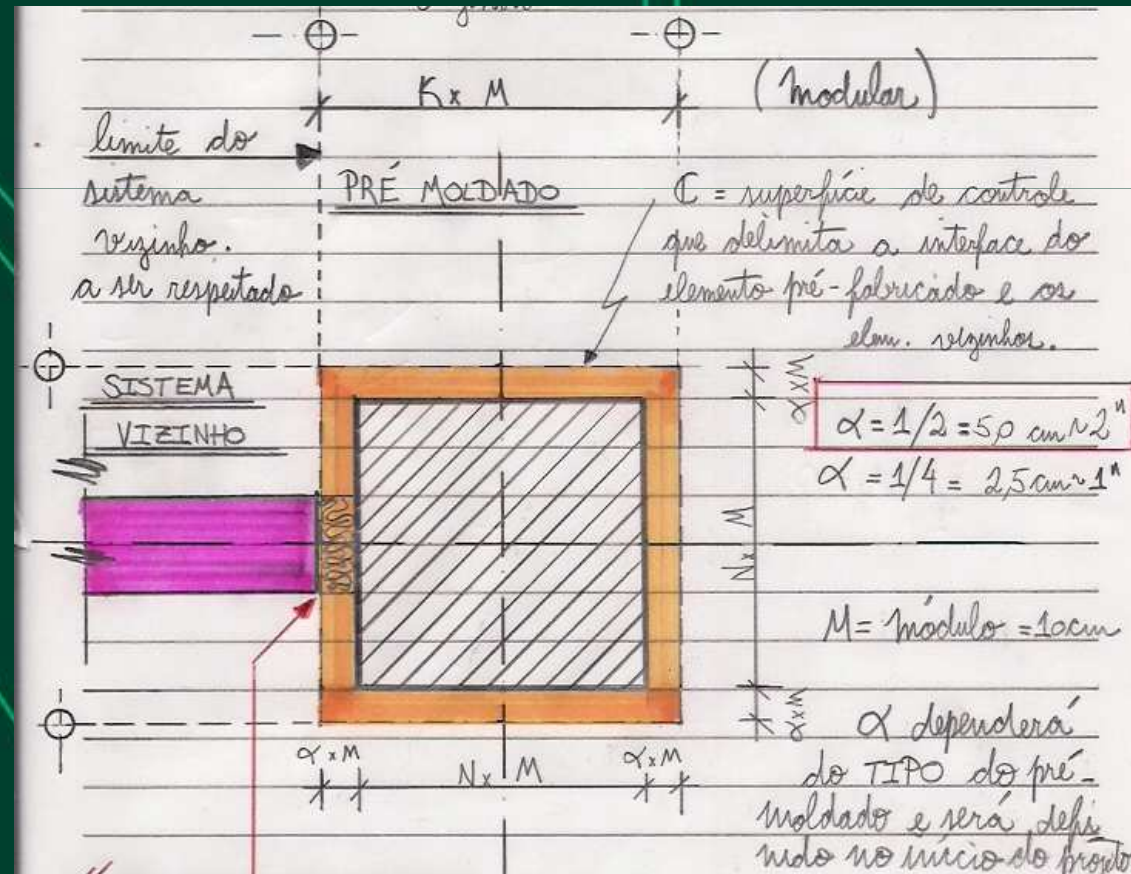 K x M
(modular)
limite do
sistema
vizinho.
a ser respeitado
PRÉ MOLDADO
C = superfície de controle
que delimita a interface do
elemento pré-fabricado e os
elem. vizinhos.
SISTEMA
VIZINHO
α x M
α = 1/2 = 5,0 cm ~ 2"
α = 1/4 = 2,5 cm ~ 1"
N x M
M = módulo = 10cm
α x M
α dependerá
do TIPO do pré-
moldado e será defi
nido no início do projeto
α x M
N x M
α x M